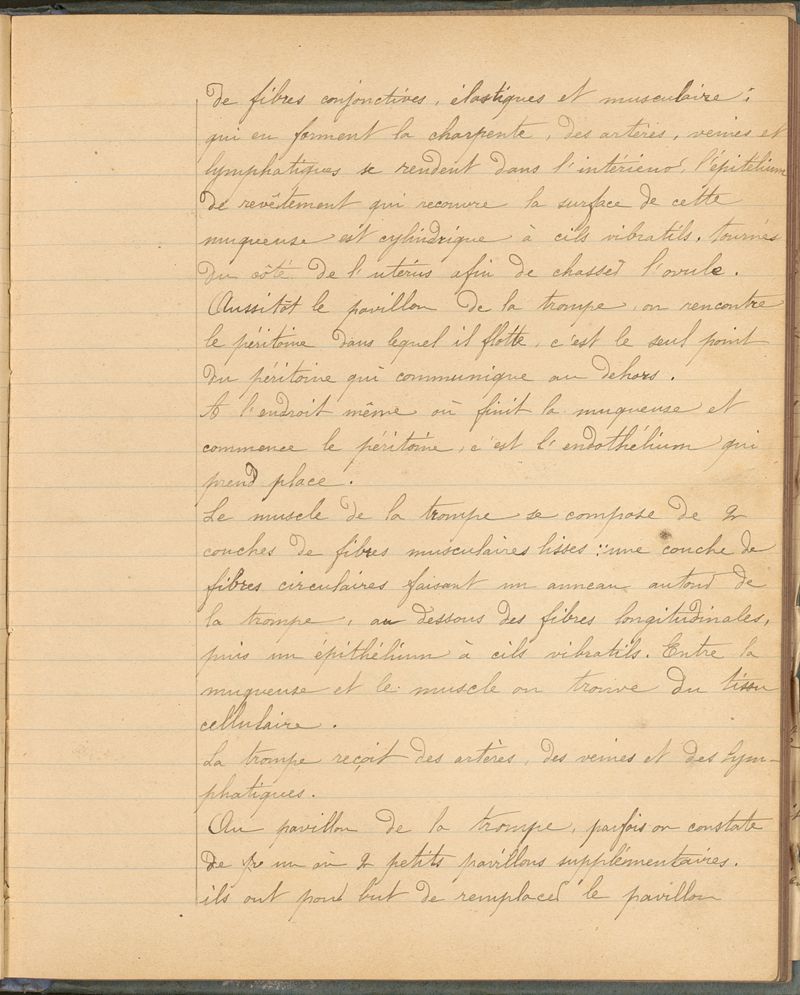 de fibres conjonctives, élastiques et musculaire;
qui en forment la charpente, des artères, veines et
lymphatiques se rendent dans l'intérieur, l'épitélium
de revêtement qui recouvre la surface de cette
muqueuse est cylindrique à cils vibratils, tournés
du côté de l'utérus afin de chasser l'ovule.
Aussitôt le pavillon de la trompe, on rencontre
le péritoine dans lequel il flotte, c'est le seul point
du péritoine qui communique au dehors.
A l'endroit même où finit la muqueuse et
commence le péritoine, c'est l'endothélium qui
prend place.
Le muscle de la trompe se compose de 2
couches de fibres musculaires lisses: une couche de
fibres circulaires faisant un anneau autour de
la trompe, au dessous des fibres longitudinales,
puis un épithélium à cils vibratils. Entre la
muqueuse et le muscle on trouve du tissu
cellulaire.
La trompe reçoit des artères, des veines et des lym-
phatiques.
Au pavillon de la trompe, parfois on constate
de un où 2 petits pavillons supplémentaires.
ils ont pour but de remplacer le pavillon